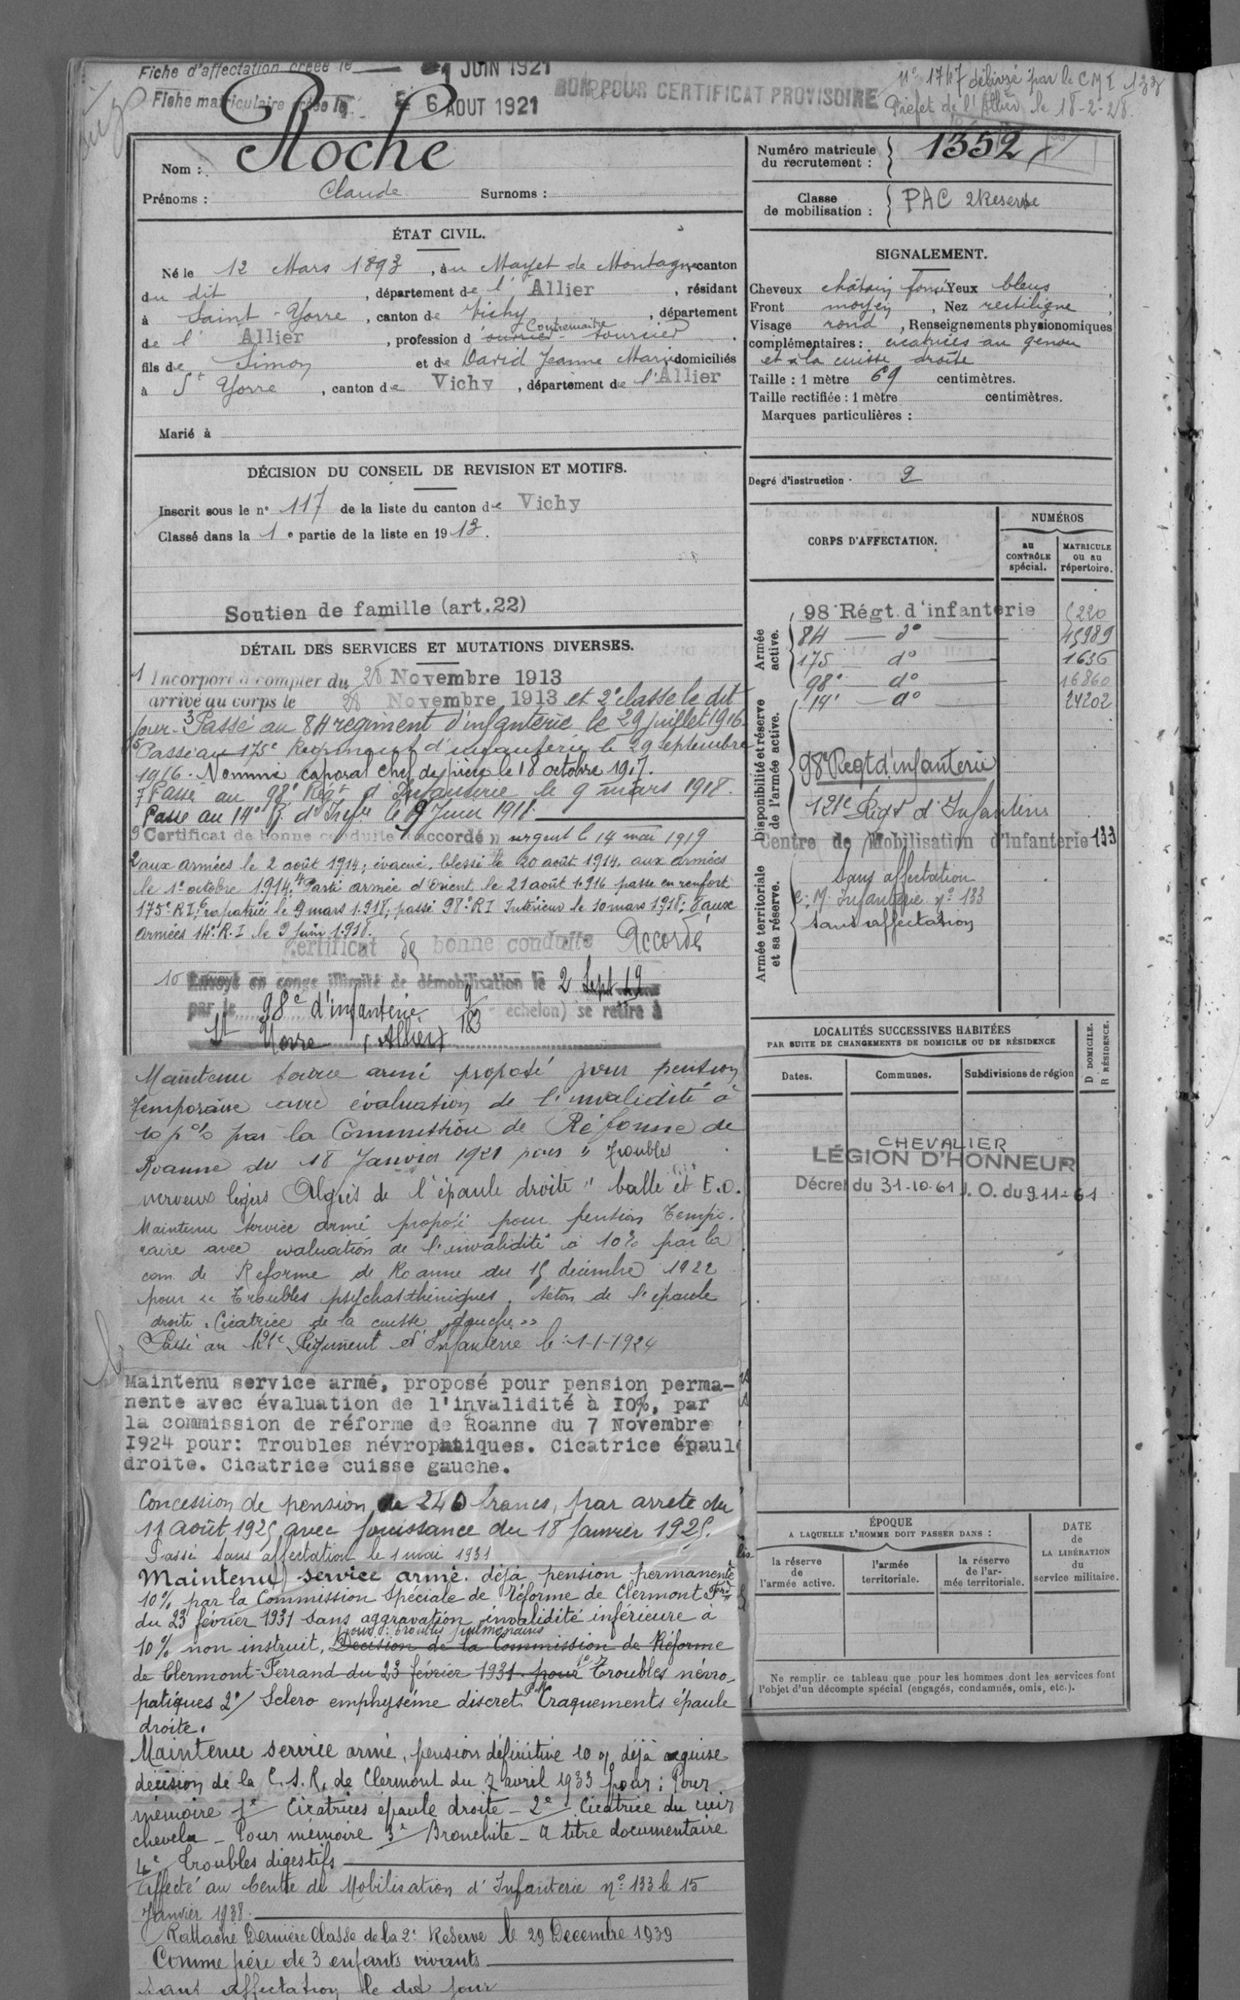 Fiche d'affectation créée le 1 JUIN 1921
Fiche matriculaire créée le 6 AOUT 1921
BON POUR CERTIFICAT PROVISOIRE
N° 1767 délivré par le CMI 133
Préfet de l'Allier le 18-2-28
Nom : Roche
Prénoms : Claude Surnoms :
ÉTAT CIVIL.
Né le 12 Mars 1893, à au Mayet de Montagne, canton
du dit, département de l'Allier, résidant
à Saint-Yorre, canton de Vichy, département
Contremaitre
de l'Allier, profession d'ouvrier sourcier
fils de Simon et de David Jeanne Marie domiciliés
à St Yorre, canton de Vichy, département de l'Allier
Marié à
DÉCISION DU CONSEIL DE REVISION ET MOTIFS.
Inscrit sous le n° 117 de la liste du canton de Vichy
Classé dans la 1e partie de la liste en 1913.
Soutien de famille (art.22)
DÉTAIL DES SERVICES ET MUTATIONS DIVERSES.
1 Incorporé à compter du 28 Novembre 1913
arrivé au corps le 28 Novembre 1913 et 2e classe le dit
jour. 3 Passé au 84 régiment d'infanterie le 29 juillet 1916
5 Passé au 175e Régiment d'infanterie le 29 septembre
1916. Nommé caporal chef de pièce le 18 octobre 1917.
7 Passé au 98e Régt d'Infanterie le 9 mars 1918.
Passé au 14e R. d'Infie le 9 Juin 1918.
9 Certificat de bonne conduite "accordé" urgent le 14 mai 1919
2 aux armées le 2 août 1914, évacué, blessé le 20 août 1914. aux armées
le 1er octobre 1914. 4 Parti armée d'Orient le 21 août 1916 passe en renfort
175e RI, 6 rapatrié le 9 mars 1918, passé 98e RI Intérieur le 10 mars 1918; 8 aux
armées 14e R.I le 9 juin 1918.
Certificat de bonne conduite Accordé
10 Envoyé en congé illimité de démobilisation le 2 Sept 19
par le 98e d'infanterie 9/183 échelon) se retire à
St Yorre (Allier)
Maintenu service armé proposé pour pension
temporaire avec évaluation de l'invalidité à
10 p% par la Commission de Réforme de
Roanne du 18 Janvier 1921 pour "Troubles
nerveux légers Algies de l'épaule droite" balle et E.O.
Maintenu service armé proposé pour pension tempo-
raire avec évaluation de l'invalidité à 10% par la
com. de Réforme de Roanne du 15 décembre 1922
pour "Troubles psychasthéniques. Séton de l'épaule
droite. Cicatrice de la cuisse gauche."
Passé au 121e Régiment d'Infanterie le 1-1-1924
Maintenu service armé, proposé pour pension perma-
nente avec évaluation de l'invalidité à 10%, par
la commission de réforme de Roanne du 7 Novembre
1924 pour: Troubles névropatiques. Cicatrice épaul
droite. Cicatrice cuisse gauche.
Concession de pension de 240 francs, par arrêté du
11 août 1925 avec jouissance du 18 Janvier 1925.
Passé sans affectation le 1 mai 1931
Maintenu service armé. déjà pension permanente
10% par la Commission Spéciale de Réforme de Clermont Fd
du 23 février 1931 sans aggravation invalidité inférieure à
pour: troubles pulmonaires
10% non instruit. Décision de la Commission de Réforme
de Clermont-Ferrand du 23 février 1931 pour 1e Troubles névro-
patiques 2e/ Sclero emphysème discret Craquements épaule
droite.
Maintenu service armé, pension définitive 10% déjà acquise
décision de la C.S.R. de Clermont du 7 avril 1933 pour: Pour
mémoire 1e Cicatrices épaule droite - 2e Cicatrice du cuir
chevelu - Pour mémoire 3e Bronchite - A titre documentaire
4e Troubles digestifs
Affecté au Centre de Mobilisation d'Infanterie n° 133 le 15
Janvier 1938.
Rattaché Dernière Classe de la 2e Réserve le 29 Décembre 1939
Comme père de 3 enfants vivants
sans affectation le dit jour
Numéro matricule
du recrutement : 1352
Classe
de mobilisation : PAC 2 Réserve
SIGNALEMENT.
Cheveux châtain foncé Yeux bleus,
Front moyen, Nez rectiligne,
Visage rond, Renseignements physionomiques
complémentaires : cicatrices au genou
et à la cuisse droite
Taille : 1 mètre 69 centimètres.
Taille rectifiée : 1 mètre centimètres.
Marques particulières :
Degré d'instruction : 2
CORPS D'AFFECTATION.
NUMÉROS
au
CONTRÔLE
spécial.
MATRICULE
ou au
répertoire.
Armée
active.
98 Régt. d'infanterie 5220
84 — d° — 45989
175 — d° — 1636
98e — d° — 16860
14e — d° — 24202
Disponibilité et réserve
de l'armée active.
98 Regt d'infanterie
121e Régt d'Infanterie
Centre de Mobilisation d'Infanterie 133
Armée territoriale
et sa réserve.
Sans affectation
C. M. Infanterie n° 133
sans affectation
LOCALITÉS SUCCESSIVES HABITÉES
PAR SUITE DE CHANGEMENTS DE DOMICILE OU DE RÉSIDENCE
D DOMICILE.
R RÉSIDENCE.
Dates. Communes. Subdivisions de région
CHEVALIER
LÉGION D'HONNEUR
Décret du 31-10-61 J.O. du 9-11-61
ÉPOQUE
A LAQUELLE L'HOMME DOIT PASSER DANS :
la réserve
de
l'armée active.
l'armée
territoriale.
la réserve
de l'ar-
mée territoriale.
DATE
de
LA LIBÉRATION
du
service militaire.
Ne remplir ce tableau que pour les hommes dont les services font
l'objet d'un décompte spécial (engagés, condamnés, omis, etc.).